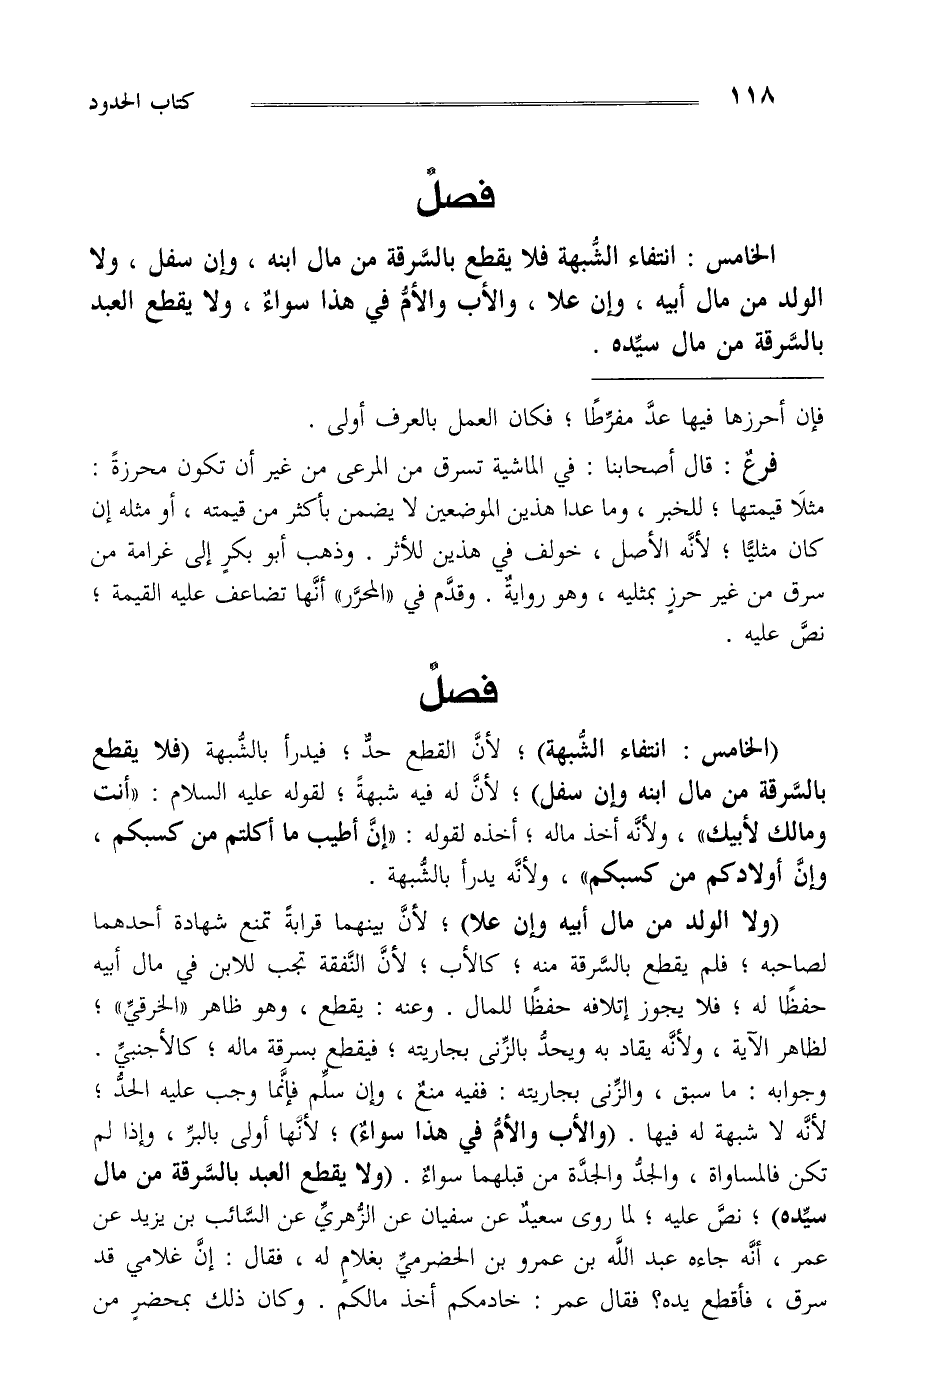 ١١٨
كتاب الحدود
فصلٌ
الخامس : انتفاء الشُّبهة فلا يقطع بالسَّرقة من مال ابنه ، وإن سفل ، ولا
الولد من مال أبيه ، وإن علا ، والأب والأمُّ في هذا سواءٌ ، ولا يقطع العبد
بالسَّرقة من مال سيِّده .
فإن أحرزها فيها عدَّ مفرِّطًا ؛ فكان العمل بالعرف أولى .
فرعٌ : قال أصحابنا : في الماشية تسرق من المرعى من غير أن تكون محرزةً :
مثلَا قيمتها ؛ للخبر ، وما عدا هذين الموضعين لا يضمن بأكثر من قيمته ، أو مثله إن
كان مثليًّا ؛ لأنَّه الأصل ، خولف في هذين للأثر . وذهب أبو بكرٍ إلى غرامة من
سرق من غير حرزٍ بمثليه ، وهو روايةٌ . وقدَّم في «المحرَّر» أنَّها تضاعف عليه القيمة ؛
نصَّ عليه .
فصلٌ
(الخامس : انتفاء الشُّبهة) ؛ لأنَّ القطع حدٌّ ؛ فيدرأ بالشُّبهة (فلا يقطع
بالسَّرقة من مال ابنه وإن سفل) ؛ لأنَّ له فيه شبهةً ؛ لقوله عليه السلام : «أنت
ومالك لأبيك» ، ولأنَّه أخذ ماله ؛ أخذه لقوله : «إنَّ أطيب ما أكلتم من كسبكم ،
وإنَّ أولادكم من كسبكم» ، ولأنَّه يدرأ بالشُّبهة .
(ولا الولد من مال أبيه وإن علا) ؛ لأنَّ بينهما قرابةً تمنع شهادة أحدهما
لصاحبه ؛ فلم يقطع بالسَّرقة منه ؛ كالأب ؛ لأنَّ النَّفقة تجب للابن في مال أبيه
حفظًا له ؛ فلا يجوز إتلافه حفظًا للمال . وعنه : يقطع ، وهو ظاهر «الخرقيِّ» ؛
لظاهر الآية ، ولأنَّه يقاد به ويحدُّ بالزِّنى بجاريته ؛ فيقطع بسرقة ماله ؛ كالأجنبيِّ .
وجوابه : ما سبق ، والزِّنى بجاريته : ففيه منعٌ ، وإن سلِّم فإنَّما وجب عليه الحدُّ ؛
لأنَّه لا شبهة له فيها . (والأب والأمُّ في هذا سواءٌ) ؛ لأنَّها أولى بالبرِّ ، وإذا لم
تكن فالمساواة ، والجدُّ والجدَّة من قبلهما سواءٌ . (ولا يقطع العبد بالسَّرقة من مال
سيِّده) ؛ نصَّ عليه ؛ لما روى سعيدٌ عن سفيان عن الزُّهريِّ عن السَّائب بن يزيد عن
عمر ، أنَّه جاءه عبد اللَّه بن عمرو بن الحضرميِّ بغلامٍ له ، فقال : إنَّ غلامي قد
سرق ، فأقطع يده؟ فقال عمر : خادمكم أخذ مالكم . وكان ذلك بمحضرٍ من